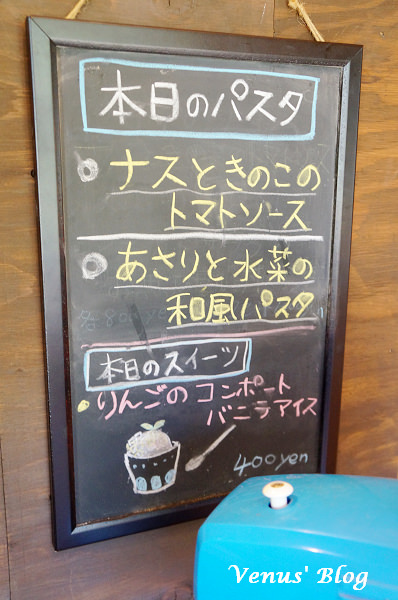 本日のパスタ
ナスときのこの
トマトソース
あさりと水菜の
和風パスタ
本日のスイーツ
りんごのコンポート
バニラアイス
400yen
Venus' Blog